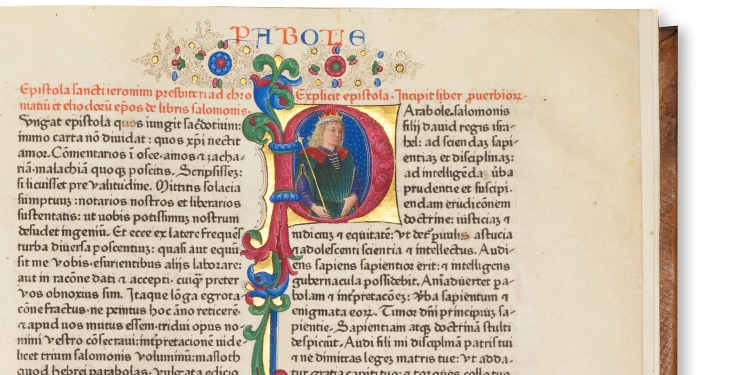 PABOLE
Epistola sancti ieronimi presbiteri ad chro
matiū et eliodoȝū ep̄os de libris salomonis.
Vngat epistola quos iungit sacd̄otium:
immo carta nō diuidat: quos xp̄i nectit
amor. Cōmentarios ī osee·amos ⁊ zacha-
riā·malachiā quoqȝ poscitis. Scripsissez:
si licuisset pre valitudine. Mittitis solacia
sumptuuȝ: notarios nostros et librarios
sustentatis: ut uobis potissimuȝ nostrum
desudet ingeniū. Et ecce ex latere frequēs
turba diuersa poscentiuȝ: quasi aut equū
sit me vobis·esurientibus alijs laborare:
aut in racōne dati ⁊ accepti·cuiqȝ preter
vos obnoxius sim. Itaque lōga egrota
cōne fractus·ne penitus hoc āno reticerē·
⁊ apud uos mutus essem·tridui opus no-
mini vestro cōsecraui: intp̄retacionē uide-
licet trium salomonis voluminū: masloth
quod hebrei parabolas·vulgata edicio
Explicit epistola. Incipit liber ꝓuerbioꝝ.
Parabole·salomonis
filij dauid regis isra-
hel: ad sciendaȝ sapi-
entiaȝ et disciplinaȝ:
ad intelligēda ūba
prudentie et suscipi-
endam erudicōnem
doctrine: iusticiaȝ ⁊
iudiciuȝ ⁊ equitatē: vt det᷑ paruulis astucia
⁊ adolescenti scientia ⁊ intellectus. Audi-
ens sapiens sapientior erit: ⁊ intelligens
gubernacula possidebit. Animaduertet pa-
bolam ⁊ intp̄retacōeȝ: v̄ba sapientum ⁊
enigmata eoꝝ. Timor dn̄i principiuȝ sa-
pientie. Sapientiam atqȝ doctrinā stulti
despiciūt. Audi fili mi disciplinā patris tui
⁊ ne dimittas legeȝ matris tue: vt adda-
tur gratia capiti tuo: ⁊ torques collo tuo